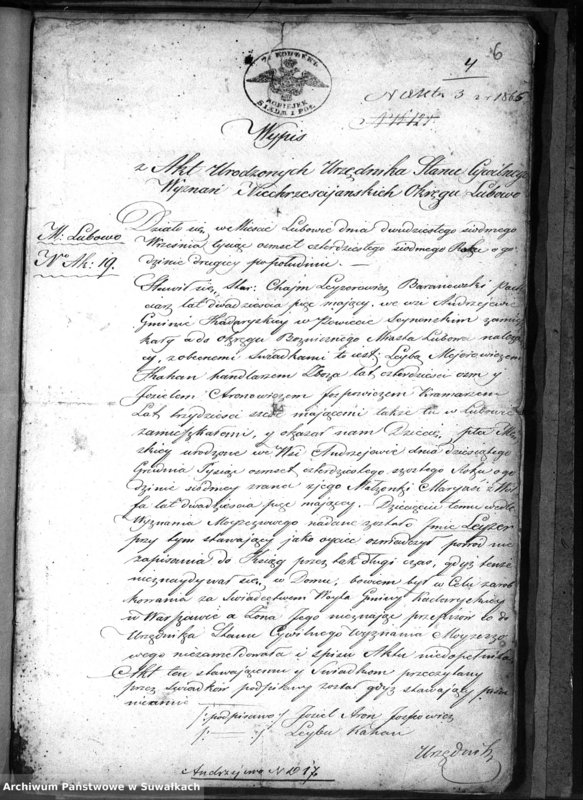 6
4
N Aktu 3 z r 1865
7½ KOPIEJEK
Wypis
z Akt Urodzonych Urzędnika Stanu Cywilnego
Wyznań Niechrześcijańskich Okręgu Lubowo
M: Lubowo
No Ak: 19.
Działo się we Mieście Lubowie dnia dwudziestego siódmego
Września tysiąc ośmset czterdziestego siódmego Roku o go
dzinie drugiey popołudniu. —
Stawił się Star: Chajm Leyzerowicz Baranowski Pach
ciarz lat dwadzieścia pięć maiący, we wsi Andrzejewie
Gminie Kadaryszkiey w Powiecie Seynenskim zamie
szkały a do okręgu Bożniczego Miasta Lubowa należą
cy, z obecnemi Świadkami to iest: Leyba Mejerowiczem
Kahan handlarzem Zboża lat czterdzieści ośm y
Josielem Aronowiczem Josfowiczem Kramarzem
Lat trzydzieści sześć mającemi także tu w Lubowie
zamieszkałemi, y okazał nam Dziecię płci Mę
zkiey urodzone we Wsi Andrzejewie dnia dziesiątego
Grudnia Tysiąc ośmset czterdziestego szóstego Roku o go
dzinie siódmey zrana z jego Małżonki Maryasi z Wul
fa lat dwadzieścia pięć maiącey. Dziecięciu temu wedle
Wyznania Moyżeszowego nadane zostało Imie Leyzer
przy tym stawaiący jako oyciec oświadczył powód nie
zapisania do Xiąg przez tak długi czas, gdyż tenże
nieznaydywał się w Domu, bowiem był w Celu zarob
kowania za Świadectwem Woyta Gminy Kadaryszkiey
w Warszawie a Żona Jego nieznając przepisów to do
Urzędnika Stanu Cywilnego Wyznania Moyżeszo
wego niezameldowała i spisu Aktu niedopełniła
Akt ten stawaiącemu y Świadkom przeczytany
przez Świadków podpisany został gdyż stawaiący pisać
nieumie
/: podpisano :/ Josiel Aron Josfowicz
/: — :/ Leyba Kahan
Urzędnik
Andrzejewo N D 17.
Archiwum Państwowe w Suwałkach